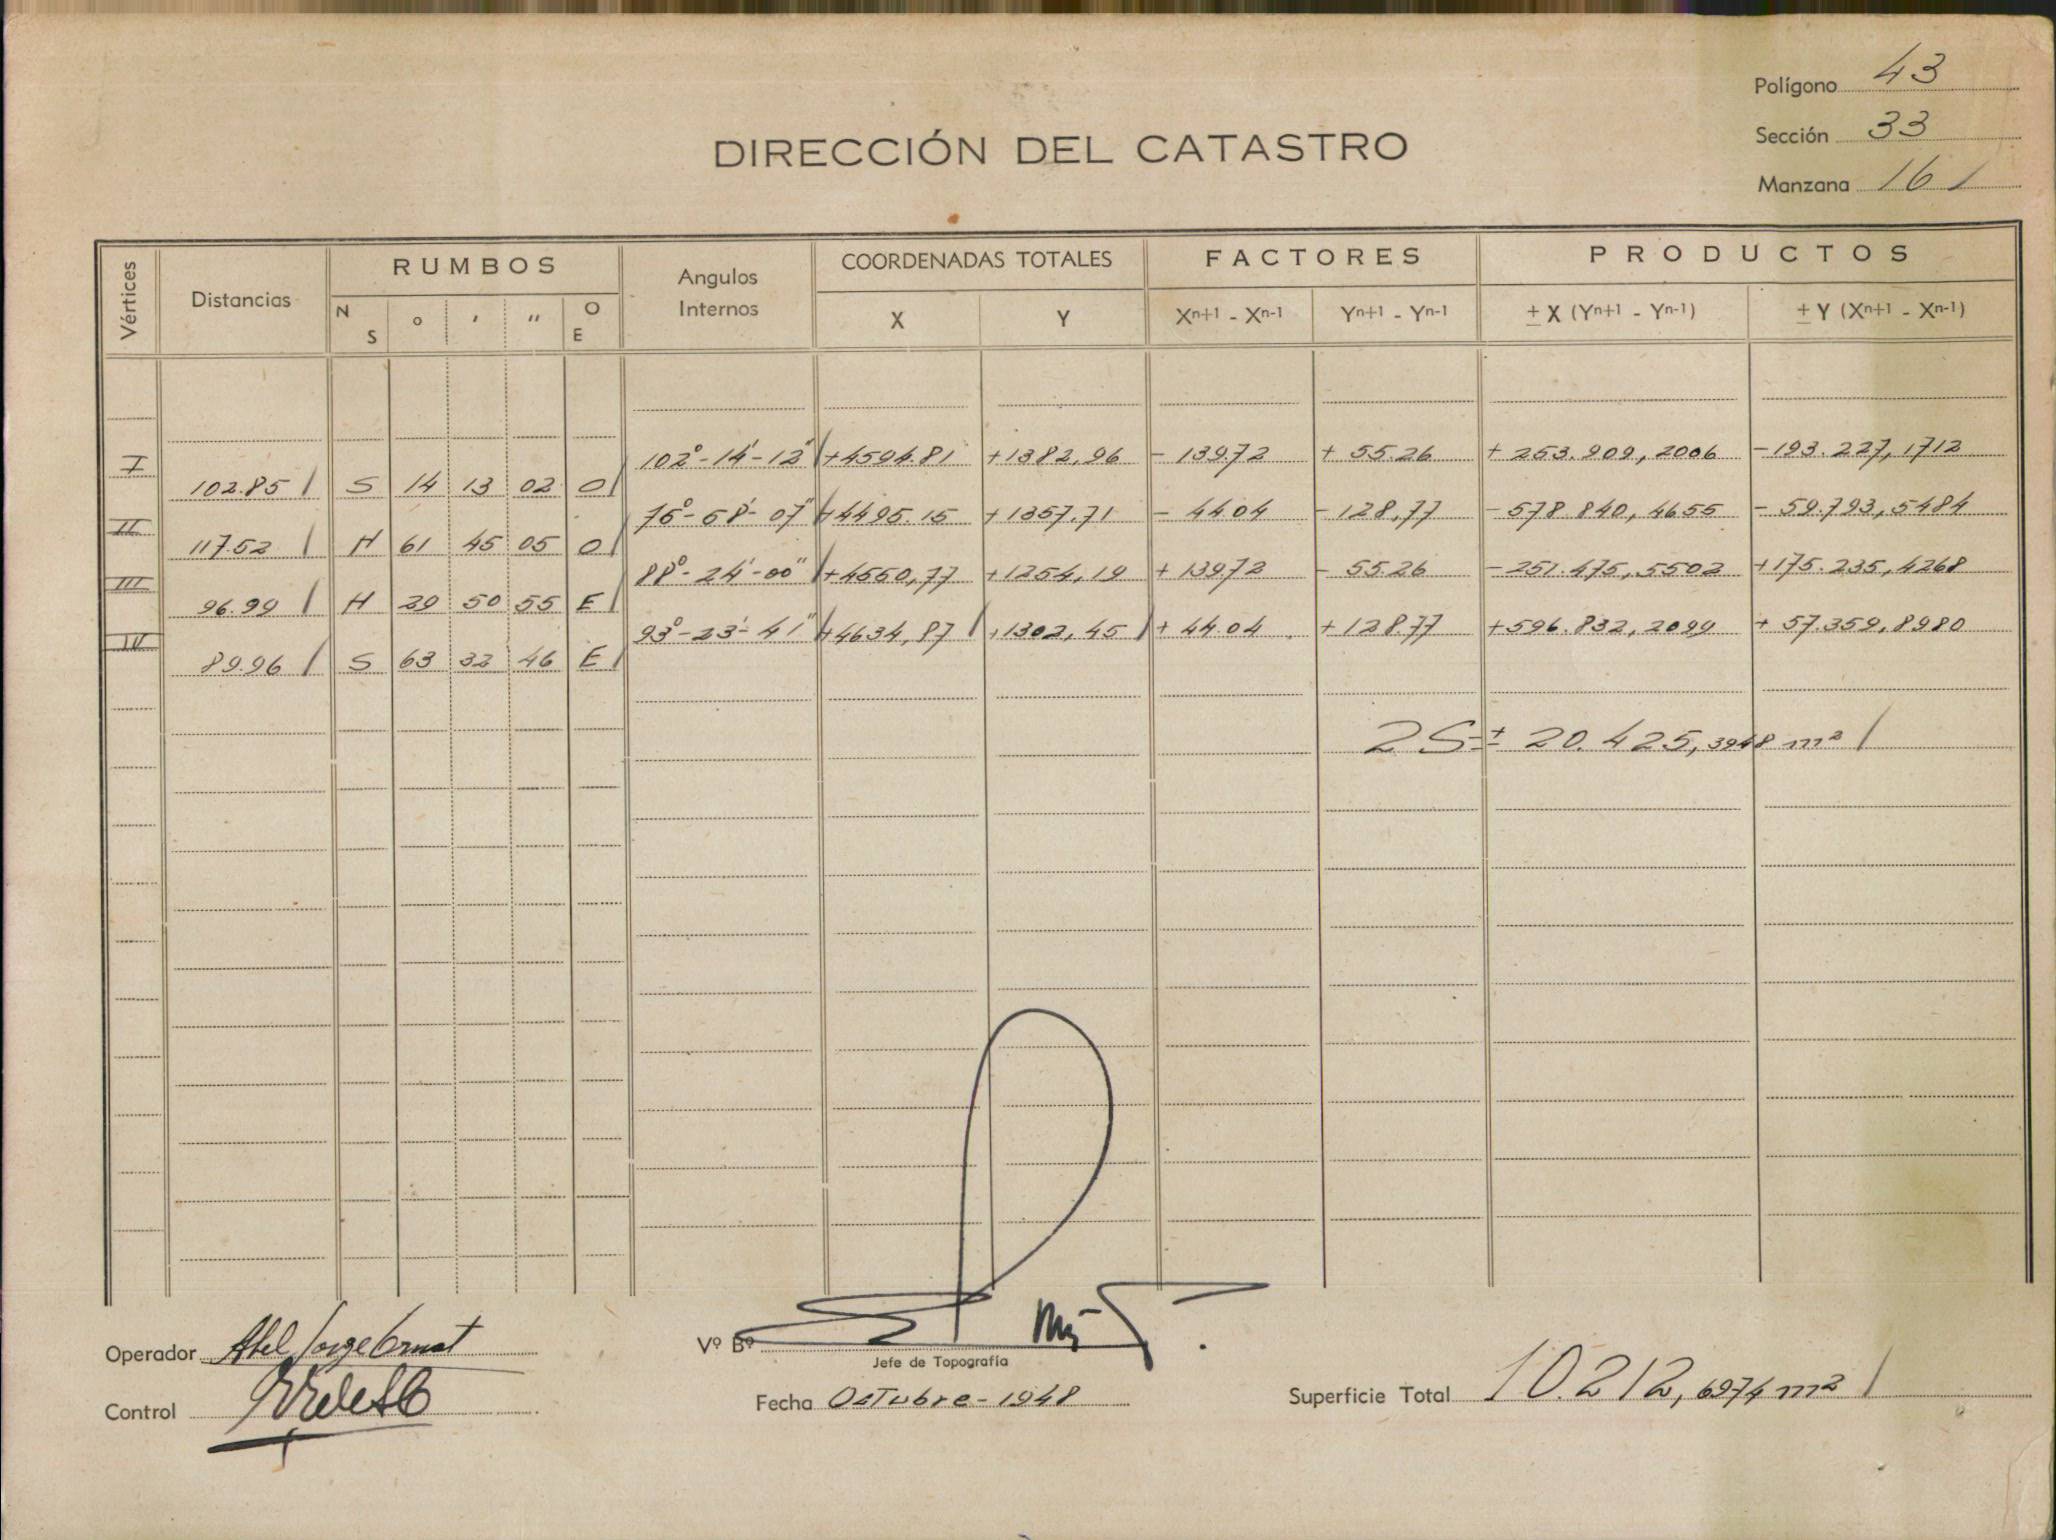 Polígono 43
Sección 33
Manzana 161
DIRECCIÓN DEL CATASTRO
Vértices Distancias RUMBOS Angulos Internos COORDENADAS TOTALES FACTORES PRODUCTOS
N S ° ' " O E X Y Xn+1 - Xn-1 Yn+1 - Yn-1 ± X (Yn+1 - Yn-1) ± Y (Xn+1 - Xn-1)
I 102°-14'-12" +4594.81 +1382,96 - 139.72 + 55.26 + 253.909,2006 -193.227,1712
102.85 S 14 13 02 O
II 75°-58'-07" +4495.15 +1357.71 - 44.04 -128,77 -578.840,4655 -59.793,5484
117.52 N 61 45 05 O
III 88°-24'-00" +4550,77 +1254,19 + 139.72 - 55.26 -251.475,5502 +175.235,4268
96.99 N 29 50 55 E
IV 93°-23'-41" +4634,87 +1302,45 + 44.04 +128.77 +596.832,2099 + 57.359,8980
89.96 S 63 32 46 E
2S=± 20.425,3948 m²
Operador Abel Jorge
Vº Bº
Jefe de Topografía
Control
Fecha Octubre-1948
Superficie Total 10.212,6974 m²